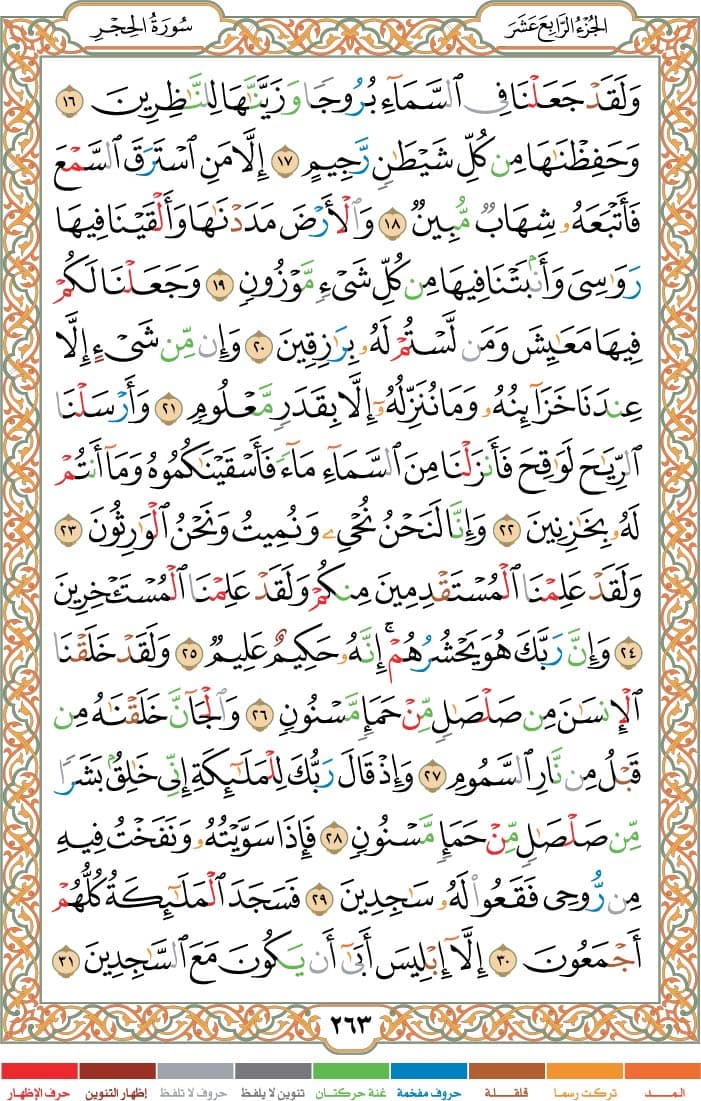 الجزء الرابع عشر
سورة الحجر
وَلَقَدْ جَعَلْنَا فِي السَّمَآءِ بُرُوجًا وَزَيَّنَّٰهَا لِلنَّٰظِرِينَ ١٦
وَحَفِظْنَٰهَا مِن كُلِّ شَيْطَٰنٍ رَّجِيمٍ ١٧ إِلَّا مَنِ ٱسْتَرَقَ ٱلسَّمْعَ
فَأَتْبَعَهُۥ شِهَابٌ مُّبِينٌ ١٨ وَٱلْأَرْضَ مَدَدْنَٰهَا وَأَلْقَيْنَا فِيهَا
رَوَٰسِىَ وَأَنۢبَتْنَا فِيهَا مِن كُلِّ شَىْءٍ مَّوْزُونٍ ١٩ وَجَعَلْنَا لَكُمْ
فِيهَا مَعَٰيِشَ وَمَن لَّسْتُمْ لَهُۥ بِرَٰزِقِينَ ٢٠ وَإِن مِّن شَىْءٍ إِلَّا
عِندَنَا خَزَآئِنُهُۥ وَمَا نُنَزِّلُهُۥٓ إِلَّا بِقَدَرٍ مَّعْلُومٍ ٢١ وَأَرْسَلْنَا
ٱلرِّيَٰحَ لَوَٰقِحَ فَأَنزَلْنَا مِنَ ٱلسَّمَآءِ مَآءً فَأَسْقَيْنَٰكُمُوهُ وَمَآ أَنتُمْ
لَهُۥ بِخَٰزِنِينَ ٢٢ وَإِنَّا لَنَحْنُ نُحْىِۦ وَنُمِيتُ وَنَحْنُ ٱلْوَٰرِثُونَ ٢٣
وَلَقَدْ عَلِمْنَا ٱلْمُسْتَقْدِمِينَ مِنكُمْ وَلَقَدْ عَلِمْنَا ٱلْمُسْتَـْٔخِرِينَ
٢٤ وَإِنَّ رَبَّكَ هُوَ يَحْشُرُهُمْ ۚ إِنَّهُۥ حَكِيمٌ عَلِيمٌ ٢٥ وَلَقَدْ خَلَقْنَا
ٱلْإِنسَٰنَ مِن صَلْصَٰلٍ مِّنْ حَمَإٍ مَّسْنُونٍ ٢٦ وَٱلْجَآنَّ خَلَقْنَٰهُ مِن
قَبْلُ مِن نَّارِ ٱلسَّمُومِ ٢٧ وَإِذْ قَالَ رَبُّكَ لِلْمَلَٰٓئِكَةِ إِنِّى خَٰلِقٌۢ بَشَرًا
مِّن صَلْصَٰلٍ مِّنْ حَمَإٍ مَّسْنُونٍ ٢٨ فَإِذَا سَوَّيْتُهُۥ وَنَفَخْتُ فِيهِ
مِن رُّوحِى فَقَعُوا۟ لَهُۥ سَٰجِدِينَ ٢٩ فَسَجَدَ ٱلْمَلَٰٓئِكَةُ كُلُّهُمْ
أَجْمَعُونَ ٣٠ إِلَّآ إِبْلِيسَ أَبَىٰٓ أَن يَكُونَ مَعَ ٱلسَّٰجِدِينَ ٣١
٢٦٣
المــد تركت رسما قلقلة حروف مفخمة غنة حركتان تنوين لا يلفظ حروف لا تلفظ إظهار التنوين حرف الإظهار